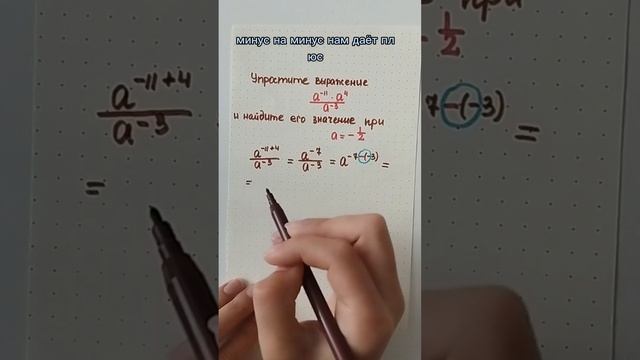 минус на минус нам даёт пл
юс
Упростите выражение
a⁻¹¹ · a⁴
a⁻³
и найдите его значение при
a = - 1/2
a⁻¹¹⁺⁴ / a⁻³ = a⁻⁷ / a⁻³ = a⁻⁷⁻⁽⁻³⁾ =
=